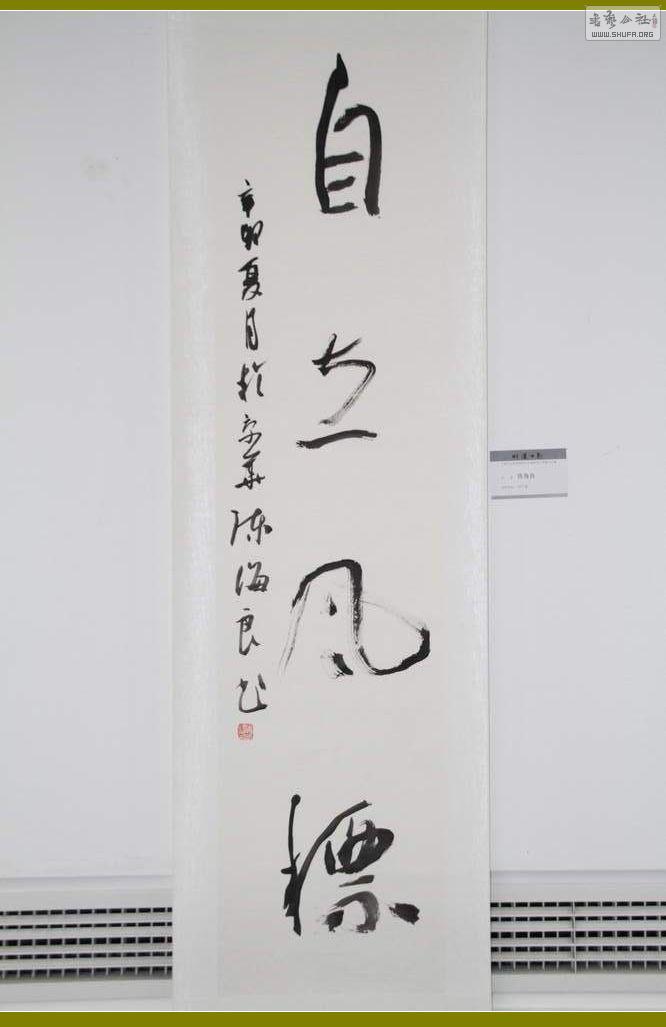 自立风标
辛卯夏月於京华陈海良书
书艺公社
WWW.SHUFA.ORG
陈海良